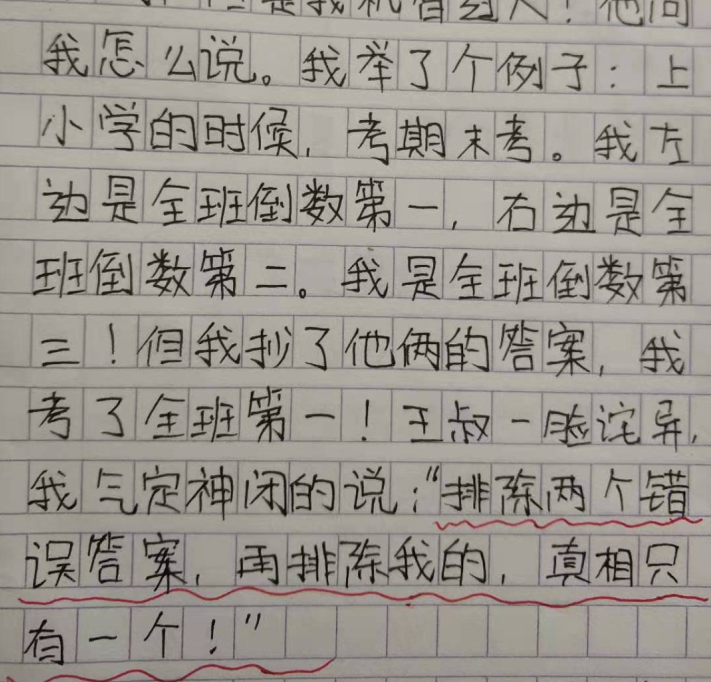 是我机智过人！他问
我怎么说。我举了个例子：上
小学的时候，考期末考。我左
边是全班倒数第一，右边是全
班倒数第二。我是全班倒数第
三！但我抄了他俩的答案，我
考了全班第一！王叔一脸诧异，
我气定神闲的说：“排除两个错
误答案，再排除我的，真相只
有一个！”